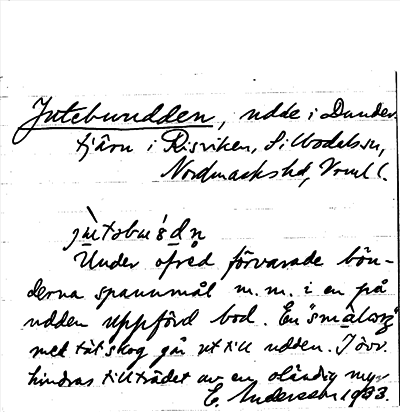 Jutebuudden, udde i Dunder-
tjärn i Risviken, Silbodals sn,
Nordmarks hd, Vrml l.
jùtəbu'ɛdn
Under ofred förvarade bön-
derna spannmål m.m. i en på
udden uppförd bod. En "smalväg"
med tät skog gå ut till udden. I övr.
hindras tillträdet av en oländig myr
E. Andersson 1933.